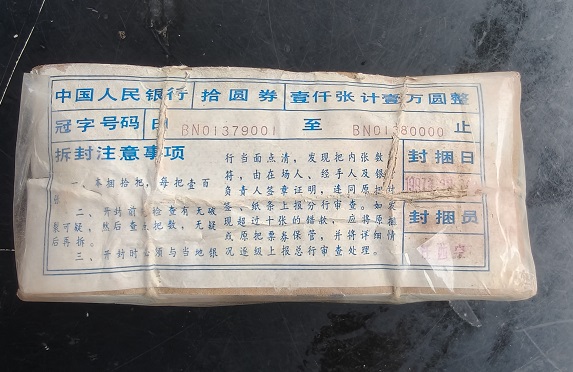 中国人民银行 拾圆券 壹仟张计壹万圆整
冠字号码 由 BN01379001 至 BN01380000 止
拆封注意事项
一、本捆拾把，每把壹百
二、开封前 检查有无破
裂可疑，然后查 把数，无疑
后再拆。
三、开封时必须与当地银
行当面点清，发现把内张数
将，由在场人、经手人及银
负责人签章证明，连同原把
签、纸条上报分行审查。如发
现超过十张的错款，应将原捆
或原把票券保管，并将详细情
况逐级上报总行审查处理。
封捆日
封捆员